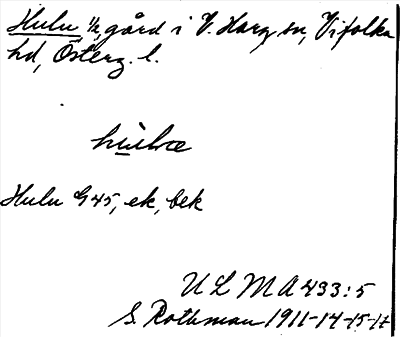 Hulu ½ gård i V. Harg sn, Vifolka
hd, Österg. l.
Hulu G 45, ek, bek
U L M A 433:5
S. Rothman 1911-14-15-17